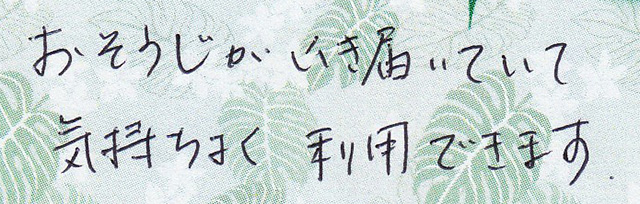 おそうじがいき届いていて
気持ちよく 利用できます.